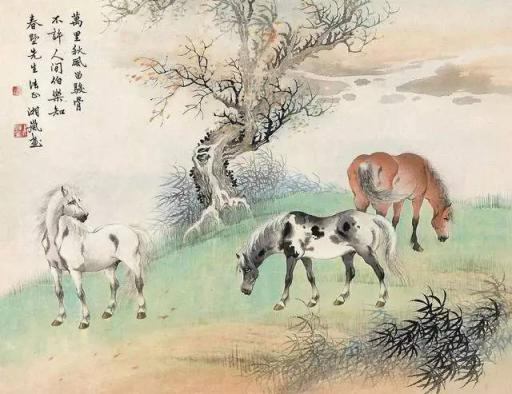 萬里秋風留駿骨
不許人間伯樂知
春墅先生法正 湘嵐畫